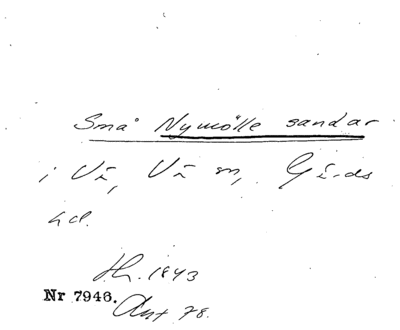 Små Nymölle sandar
i Vä, Vä sn, Gärds
hd.
Hr. 1843
Nr 7946.
Ant 78.